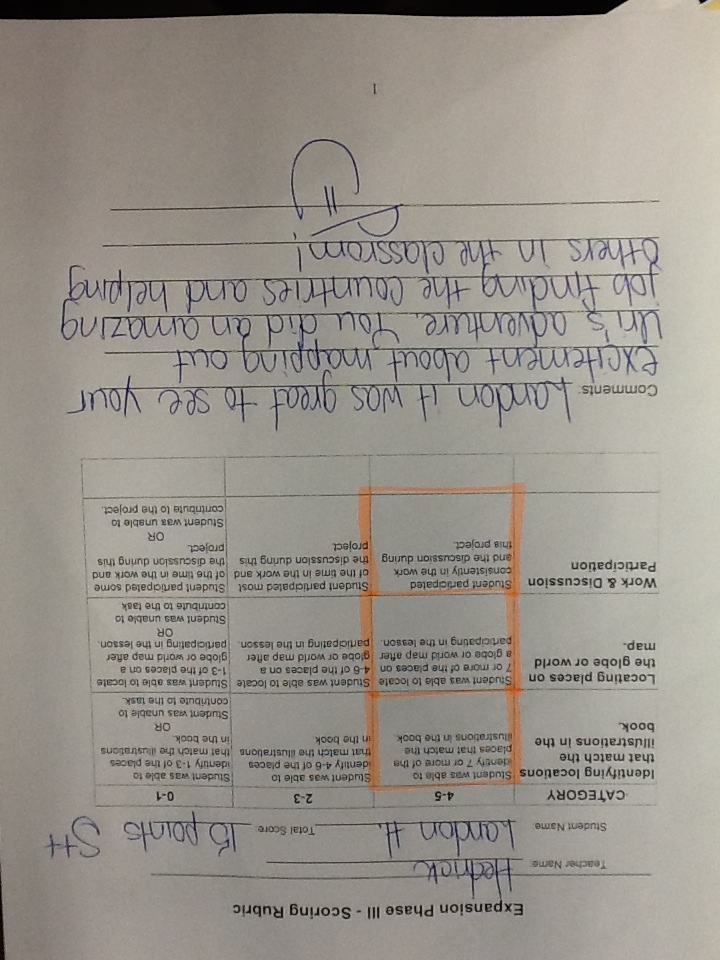 Expansion Phase III - Scoring Rubric
Teacher Name: Hedrick
Student Name: Landon H. Total Score: 15 points S++
CATEGORY 4-5 2-3 0-1
Identifying locations that match the illustrations in the book.
Student was able to identify 7 or more of the places that match the illustrations in the book.
Student was able to identify 4-6 of the places that match the illustrations in the book
Student was able to identify 1-3 of the places that match the illustrations in the book.
OR
Student was unable to contribute to the task.
Locating places on the globe or world map.
Student was able to locate 7 or more of the places on a globe or world map after participating in the lesson.
Student was able to locate 4-6 of the places on a globe or world map after participating in the lesson.
Student was able to locate 1-3 of the places on a globe or world map after participating in the lesson.
OR
Student was unable to contribute to the task
Work & Discussion Participation
Student participated consistently in the work and the discussion during this project.
Student participated most of the time in the work and the discussion during this project.
Student participated some of the time in the work and the discussion during this project.
OR
Student was unable to contribute to the project.
Comments: Landon it was great to see your
excitement about mapping out
Uri's adventure. You did an amazing
job finding the countries and helping
others in the classrom!
1